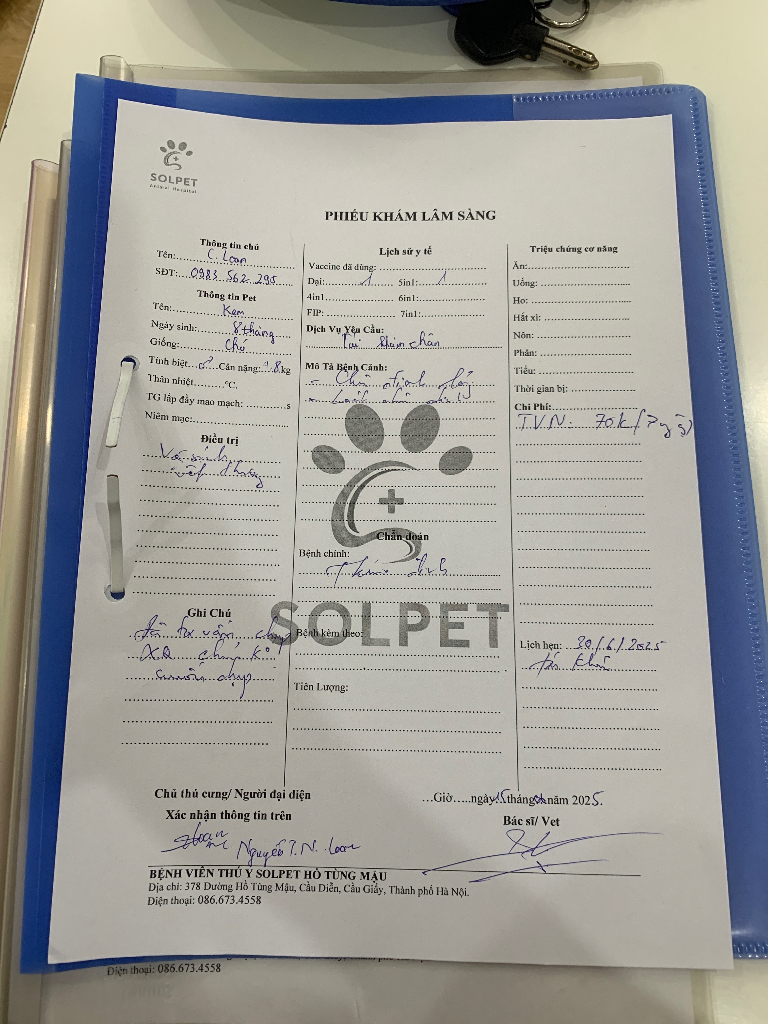 SOLPET
Animal Hospital
PHIẾU KHÁM LÂM SÀNG
Thông tin chủ
Tên: C. Loan
SĐT: 0983 562 295
Thông tin Pet
Tên: Kem
Ngày sinh: 8 tháng
Giống: Chó
Tính biệt ♂ Cân nặng: 1.8kg
Thân nhiệt.......°C.
TG lấp đầy mao mạch:............s
Niêm mạc:
Điều trị
Vệ sinh
vết thương
Ghi Chú
Đã tư vấn chụp
XQ
Lịch sử y tế
Vaccine đã dùng:
Dại: 1 5in1: 1
4in1 6in1:
FIP: 7in1:
Dịch Vụ Yêu Cầu:
Tái khám chân
Mô Tả Bệnh Cảnh:
Chẩn đoán
Bệnh chính:
Bệnh kèm theo:
Tiên Lượng:
SOLPET
Triệu chứng cơ năng
Ăn:
Uống:
Ho:
Hắt xì:
Nôn:
Phân:
Tiểu:
Thời gian bị:
Chi Phí:
TVN: 70k
Lịch hẹn: 20/6/2025
tái khám
Chủ thú cưng/ Người đại diện
Xác nhận thông tin trên
Loan Nguyễn T.N. Loan
...Giờ.....ngày 15 tháng năm 2025.
Bác sĩ/ Vet
BỆNH VIỆN THÚ Y SOLPET HỒ TÙNG MẬU
Địa chỉ: 378 Đường Hồ Tùng Mậu, Cầu Diễn, Cầu Giấy, Thành phố Hà Nội.
Điện thoại: 086.673.4558
Điện thoại: 086.673.4558